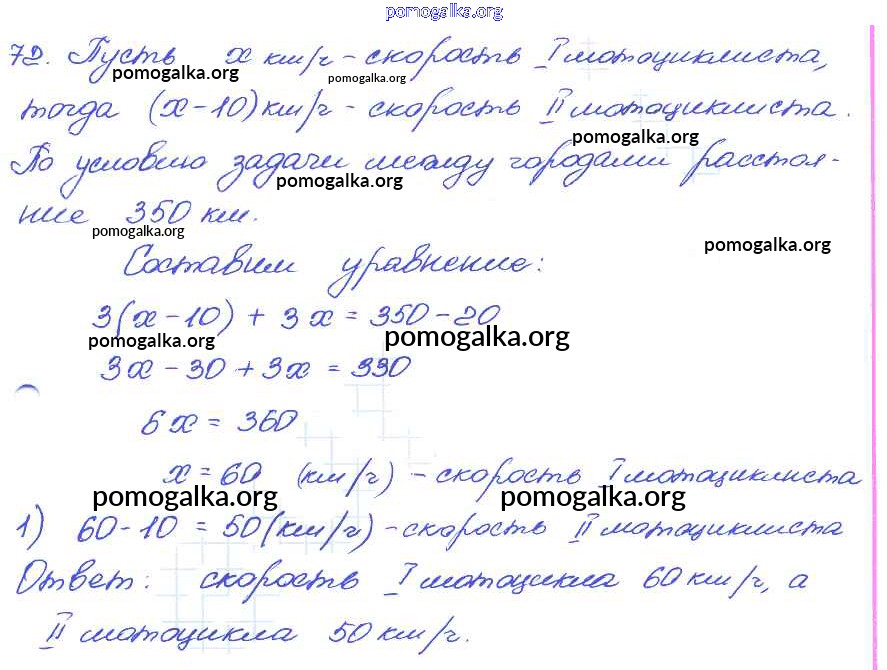 pomogalka.org
72. Пусть x км/ч - скорость I мотоциклиста,
pomogalka.org
pomogalka.org
тогда (x-10) км/ч - скорость II мотоциклиста.
pomogalka.org
По условию задачи между городами расстоя-
pomogalka.org
ние 350 км.
pomogalka.org
pomogalka.org
Составим уравнение:
3(x-10) + 3x = 350-20
pomogalka.org
pomogalka.org
3x - 30 + 3x = 330
6x = 360
x = 60 (км/ч) - скорость I мотоциклиста
pomogalka.org
pomogalka.org
1) 60-10 = 50 (км/ч) - скорость II мотоциклиста
Ответ: скорость I мотоцикла 60 км/ч, а
II мотоцикла 50 км/ч.